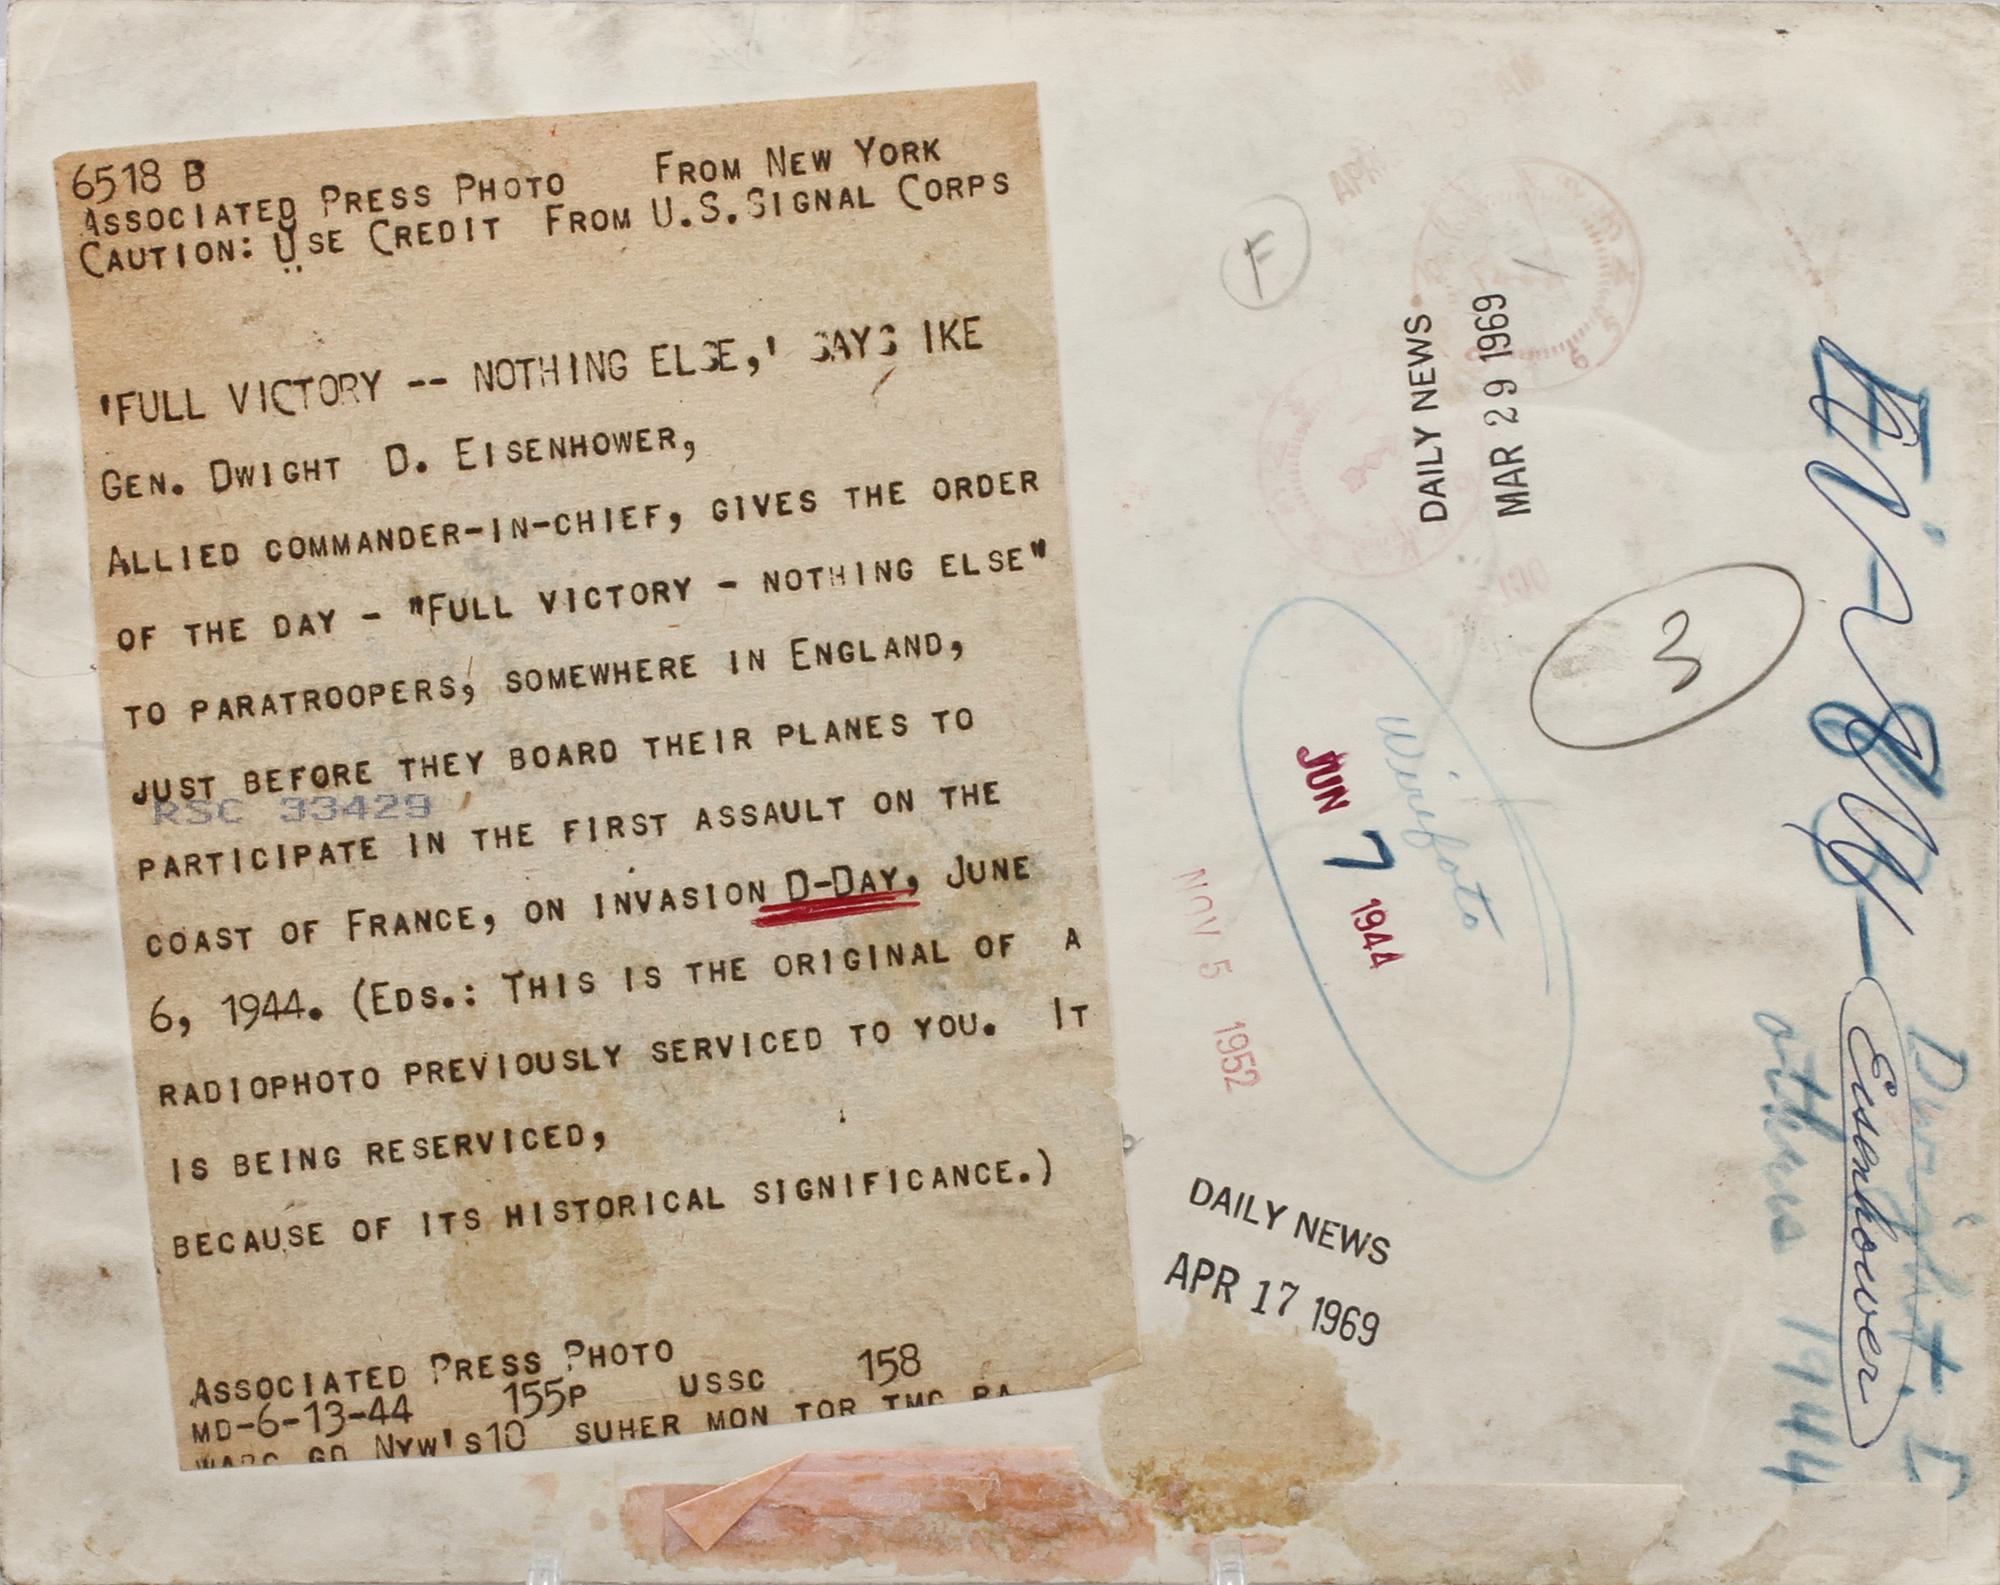 6518 B
ASSOCIATED PRESS PHOTO FROM NEW YORK
CAUTION: USE CREDIT FROM U.S. SIGNAL CORPS
'FULL VICTORY -- NOTHING ELSE,' SAYS IKE
GEN. DWIGHT D. EISENHOWER,
ALLIED COMMANDER-IN-CHIEF, GIVES THE ORDER
OF THE DAY - "FULL VICTORY - NOTHING ELSE"
TO PARATROOPERS, SOMEWHERE IN ENGLAND,
JUST BEFORE THEY BOARD THEIR PLANES TO
RSC 33429
PARTICIPATE IN THE FIRST ASSAULT ON THE
COAST OF FRANCE, ON INVASION D-DAY, JUNE
6, 1944. (EDS.: THIS IS THE ORIGINAL OF A
RADIOPHOTO PREVIOUSLY SERVICED TO YOU. IT
IS BEING RESERVICED,
BECAUSE OF ITS HISTORICAL SIGNIFICANCE.)
ASSOCIATED PRESS PHOTO
MD-6-13-44 155P USSC 158
NYW'S10 SUHER MON TOR
F
DAILY NEWS
MAR 29 1969
3
Wirefoto
JUN 7 1944
NOV 5 1952
DAILY NEWS
APR 17 1969
Eisenhower
Dwight D
others 1944